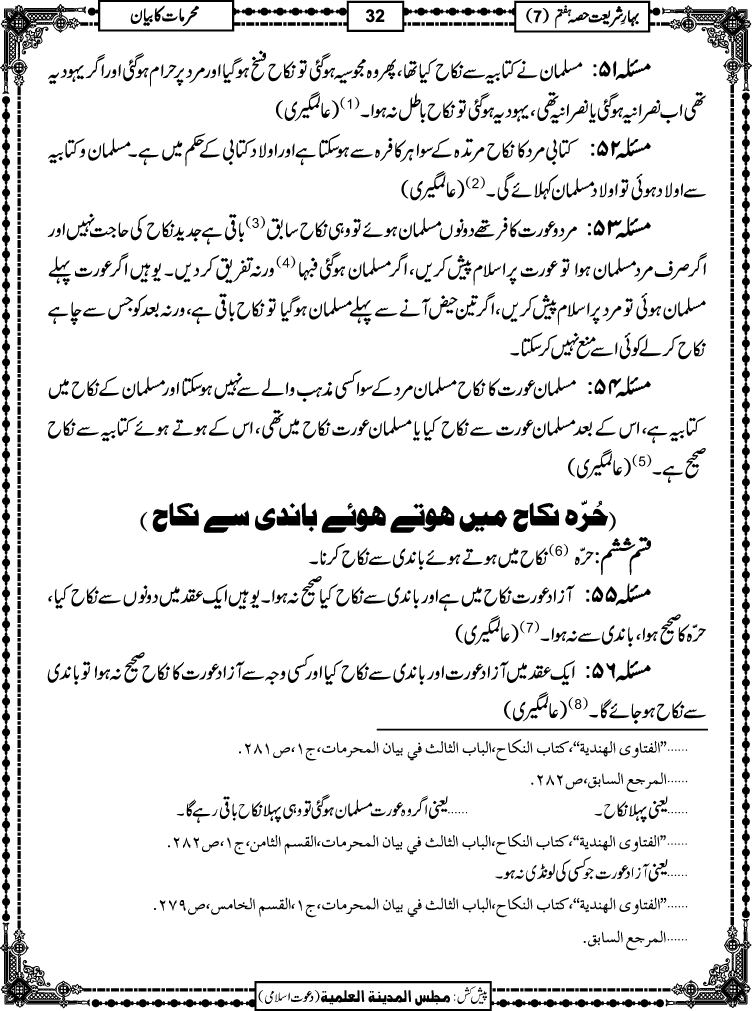 بہارِشریعت حصہ ہفتم (7)
32
محرمات کا بیان
مسئلہ ۵۱: مسلمان نے کتابیہ سے نکاح کیا تھا، پھر وہ مجوسیہ ہوگئی تو نکاح فسخ ہوگیا اور مرد پر حرام ہوگئی اور اگر یہودیہ
تھی اب نصرانیہ ہوگئی یا نصرانیہ تھی، یہودیہ ہوگئی تو نکاح باطل نہ ہوا۔(1) (عالمگیری)
مسئلہ ۵۲: کتابی مرد کا نکاح مرتدہ کے سوا ہر کافرہ سے ہوسکتا ہے اور اولاد کتابی کے حکم میں ہے۔ مسلمان و کتابیہ
سے اولاد ہوئی تو اولاد مسلمان کہلائے گی۔(2) (عالمگیری)
مسئلہ ۵۳: مرد و عورت کافر تھے دونوں مسلمان ہوئے تو وہی نکاح سابق(3) باقی ہے جدید نکاح کی حاجت نہیں اور
اگر صرف مرد مسلمان ہوا تو عورت پر اسلام پیش کریں، اگر مسلمان ہوگئی فبہا(4) ورنہ تفریق کر دیں۔ یوہیں اگر عورت پہلے
مسلمان ہوئی تو مرد پر اسلام پیش کریں، اگر تین حیض آنے سے پہلے مسلمان ہوگیا تو نکاح باقی ہے، ورنہ بعد کو جس سے چاہے
نکاح کرلے کوئی اسے منع نہیں کرسکتا۔
مسئلہ ۵۴: مسلمان عورت کا نکاح مسلمان مرد کے سوا کسی مذہب والے سے نہیں ہوسکتا اور مسلمان کے نکاح میں
کتابیہ ہے، اس کے بعد مسلمان عورت سے نکاح کیا یا مسلمان عورت نکاح میں تھی، اس کے ہوتے ہوئے کتابیہ سے نکاح
صحیح ہے۔(5) (عالمگیری)
(حُرّہ نکاح میں ہوتے ہوئے باندی سے نکاح)
قسم ششم: حرّہ (6) نکاح میں ہوتے ہوئے باندی سے نکاح کرنا۔
مسئلہ ۵۵: آزاد عورت نکاح میں ہے اور باندی سے نکاح کیا صحیح نہ ہوا۔ یوہیں ایک عقد میں دونوں سے نکاح کیا،
حرّہ کا صحیح ہوا، باندی سے نہ ہوا۔(7) (عالمگیری)
مسئلہ ۵۶: ایک عقد میں آزاد عورت اور باندی سے نکاح کیا اور کسی وجہ سے آزاد عورت کا نکاح صحیح نہ ہوا تو باندی
سے نکاح ہو جائے گا۔(8) (عالمگیری)
......"الفتاوی الهندية"، کتاب النکاح، الباب الثالث في بيان المحرمات، ج۱، ص۲۸۱.
......المرجع السابق، ص۲۸۲.
......یعنی پہلا نکاح۔ ......یعنی اگر وہ عورت مسلمان ہوگئی تو وہی پہلا نکاح باقی رہے گا۔
......"الفتاوی الهندية"، کتاب النکاح، الباب الثالث في بيان المحرمات، القسم الثامن، ج۱، ص۲۸۲.
......یعنی آزاد عورت جو کسی کی لونڈی نہ ہو۔
......"الفتاوی الهندية"، کتاب النکاح، الباب الثالث في بيان المحرمات، ج۱، القسم الخامس، ص۲۷۹.
......المرجع السابق.
پیش کش: مجلس المدينة العلمية (دعوتِ اسلامی)